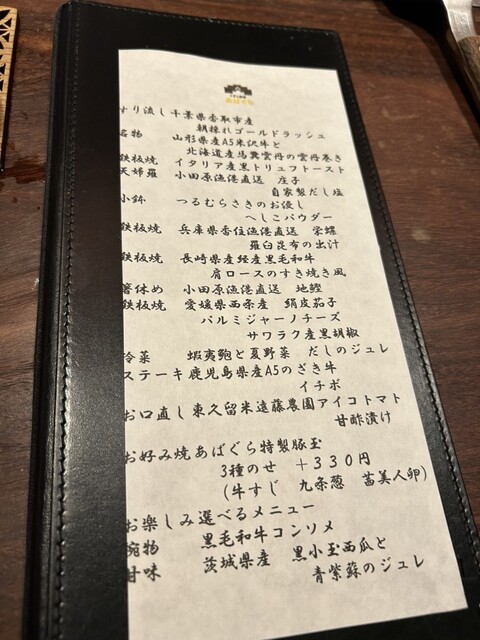 すり流し 千葉県香取市産
朝採れゴールドラッシュ
名物 山形県産A5米沢牛と
北海道産馬糞雲丹の雲丹巻き
鉄板焼 イタリア産黒トリュフトースト
天婦羅 小田原漁港直送 庄子
自家製だし塩
小鉢 つるむらさきのお浸し
へしこパウダー
鉄板焼 兵庫県香住漁港直送 栄螺
羅臼昆布の出汁
鉄板焼 長崎県産経産黒毛和牛
肩ロースのすき焼き風
箸休め 小田原漁港直送 地鰹
鉄板焼 愛媛県西条産 絹皮茄子
パルミジャーノチーズ
サワラク産黒胡椒
冷菜 蝦夷鮑と夏野菜 だしのジュレ
ステーキ 鹿児島県産A5のざき牛
イチボ
お口直し 東久留米遠藤農園アイコトマト
甘酢漬け
お好み焼 あばぐら特製豚玉
3種のせ +330円
(牛すじ 九条葱 苗美人卵)
お楽しみ選べるメニュー
椀物 黒毛和牛コンソメ
甘味 茨城県産 黒小玉西瓜と
青紫蘇のジュレ